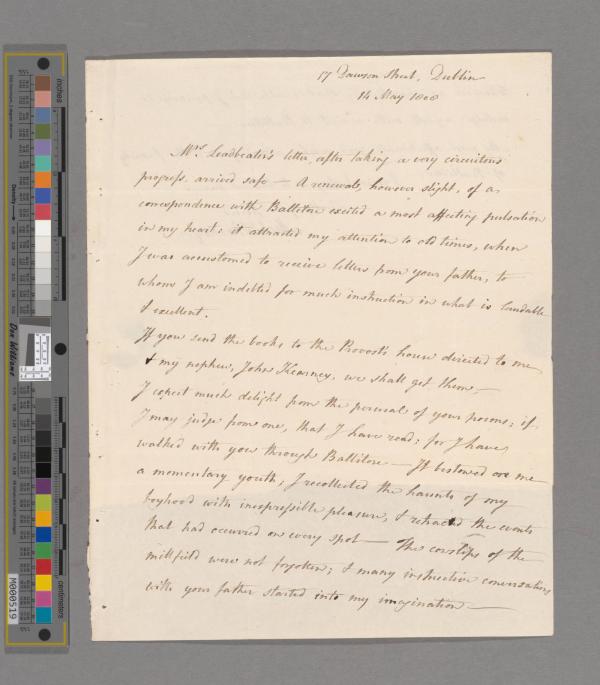 17 Dawson Street, Dublin
14 May 1808
Mrs. Leadbeater's letter, after taking a very circuitous
progress arrived safe — A renewal, however slight, of a
correspondence with Ballitore excited a most affecting pulsation
in my heart; it attracted my attention to old times, when
I was accustomed to receive letters from your father, to
whom I am indebted for much instruction in what is laudable
& excellent.
If you send the books to the Provost's house directed to me
& my nephew, John Kearney, we shall get them —
I expect much delight from the perusal of your poems; if
I may judge from one, that I have read; for I have
walked with you through Ballitore — It bestowed on me
a momentary youth, I recollected the haunts of my
boyhood with inexpressible pleasure, & retraced the events
that had occurred on every spot — The cowslips of the
millfield were not forgotten; & many instructive conversations
with your father started into my imagination —
inches
centimeters
Don Williams
M000519